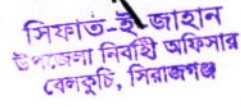 সিফাত-ই-জাহান
উপজেলা নির্বাহী অফিসার
বেলকুচি, সিরাজগঞ্জ